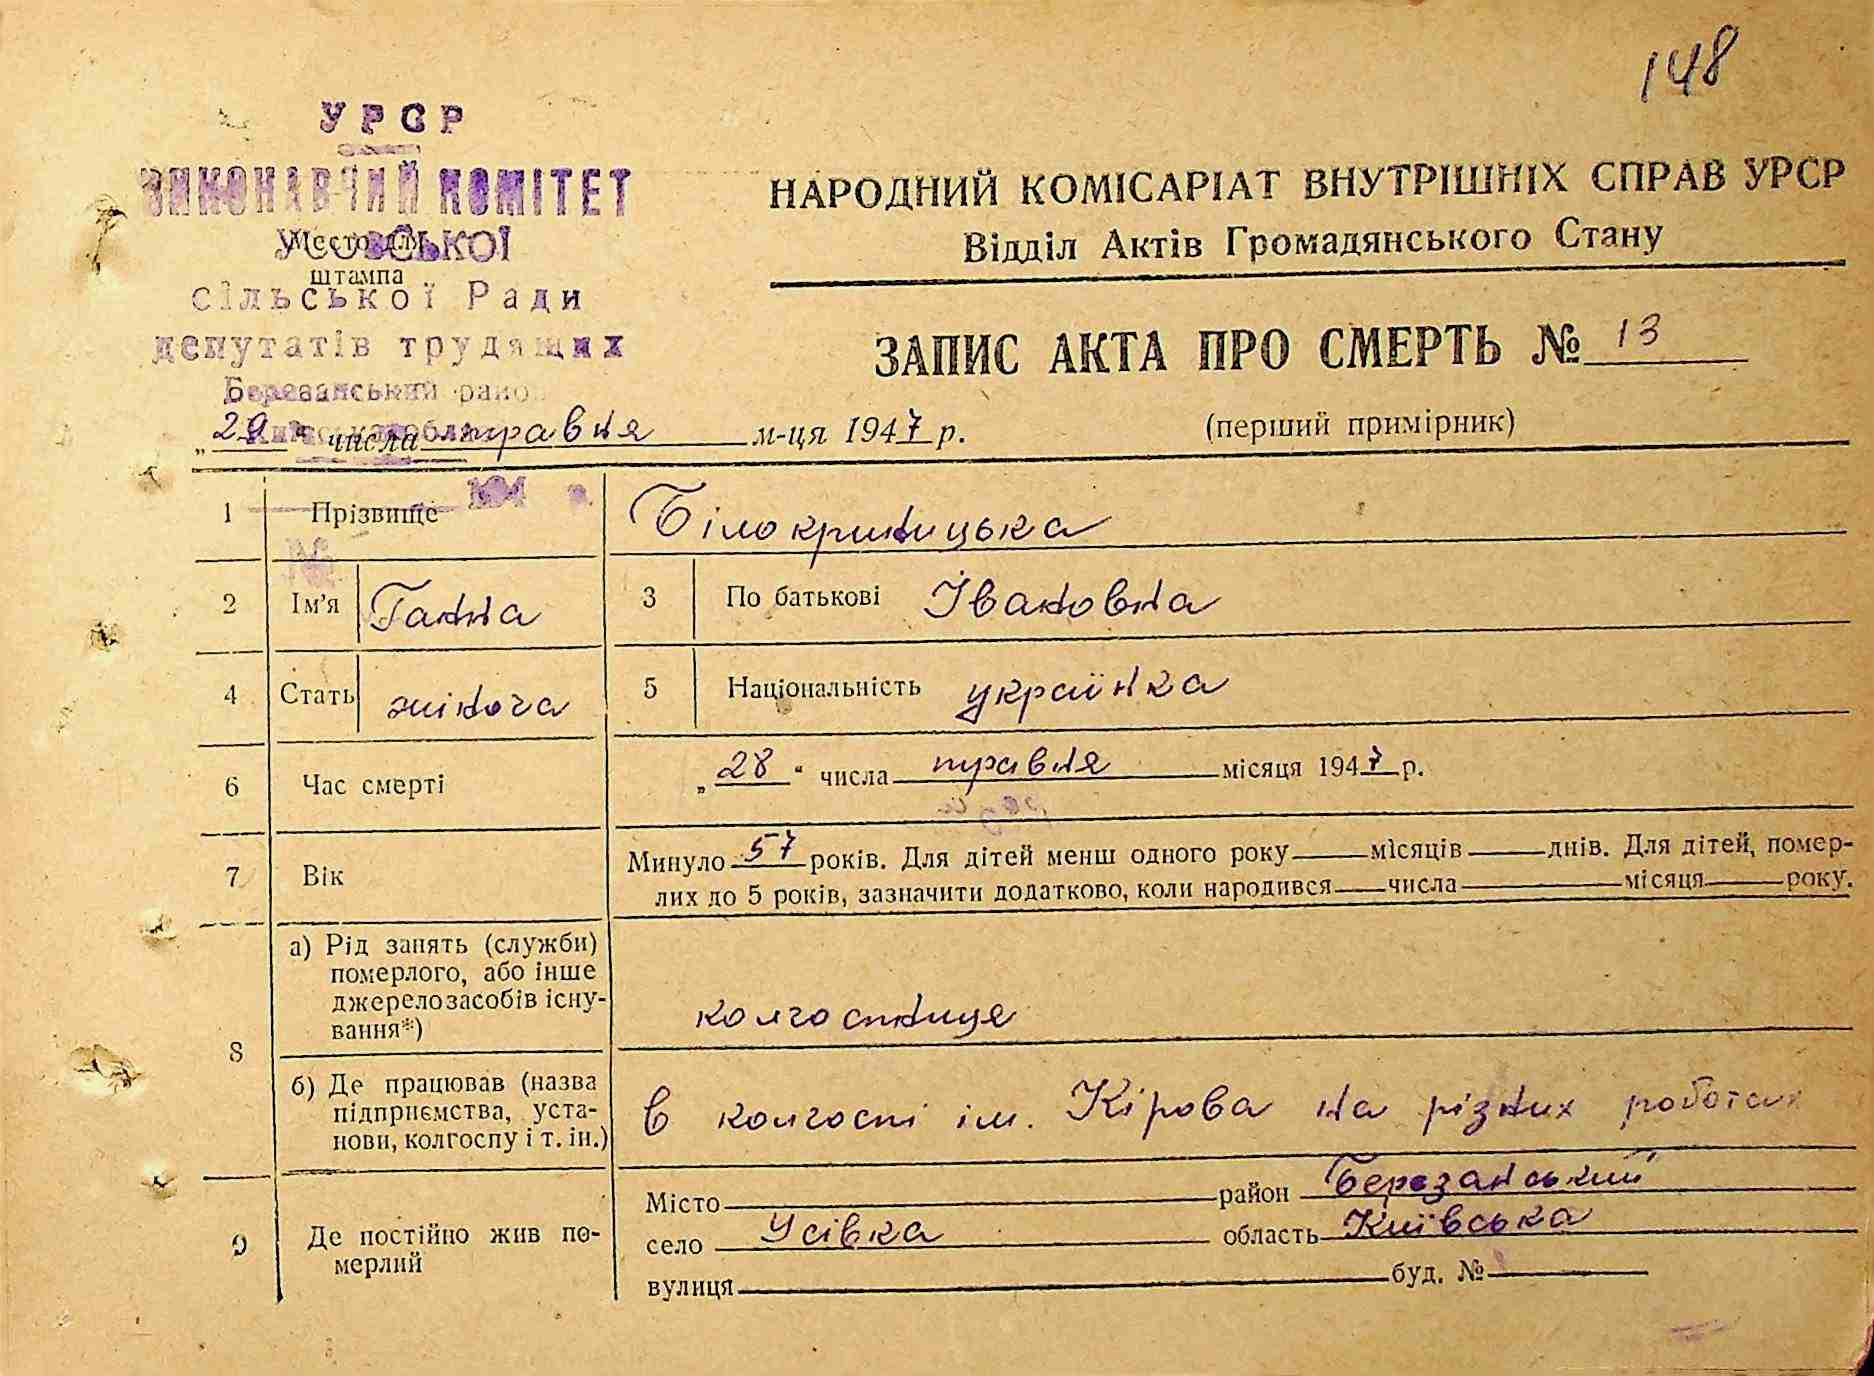 148
УРСР
ВИКОНАВЧИЙ КОМІТЕТ
УСІВСЬКОЇ
Место для
штампа
сільської Ради
депутатів трудящих
Березанський район
НАРОДНИЙ КОМІСАРІАТ ВНУТРІШНІХ СПРАВ УРСР
Відділ Актів Громадянського Стану
ЗАПИС АКТА ПРО СМЕРТЬ № 13
(перший примірник)
„29“ числа травня м-ця 1947 р.
194 р.
1 Прізвище Білокриницька
2 Ім'я Ганна 3 По батькові Івановна
4 Стать жіноча 5 Національність українка
6 Час смерті „28“ числа травня місяця 1947 р.
7 Вік Минуло 57 років. Для дітей менш одного року місяців днів. Для дітей, помер-
лих до 5 років, зазначити додатково, коли народився числа місяця року.
8 а) Рід занять (служби)
померлого, або інше
джерело засобів існу-
вання*) колгоспниця
б) Де працював (назва
підприємства, уста-
нови, колгоспу і т. ін.) в колгоспі ім. Кірова на різних роботах
9 Де постійно жив по-
мерлий
Місто район Березанський
село Усівка область Київська
вулиця буд. №